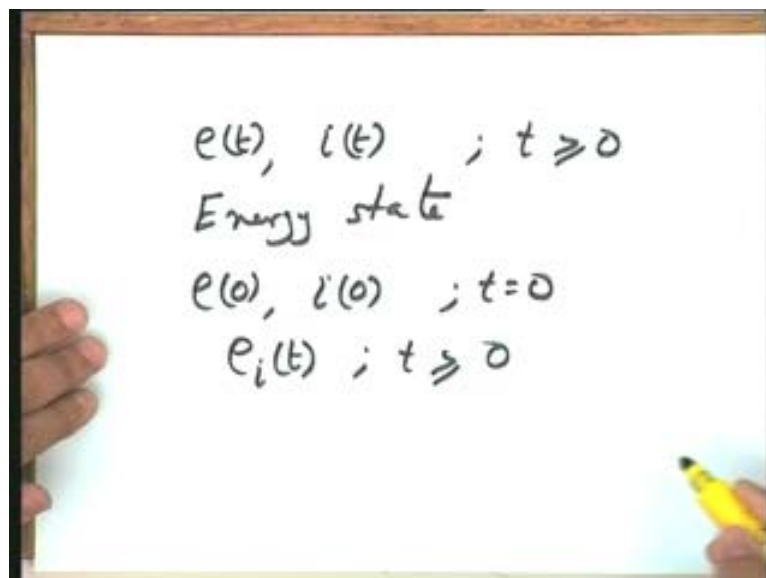 e(t), i(t) ; t ⩾ 0
Energy state
e(0), i(0) ; t=0
eᵢ(t) ; t ⩾ 0